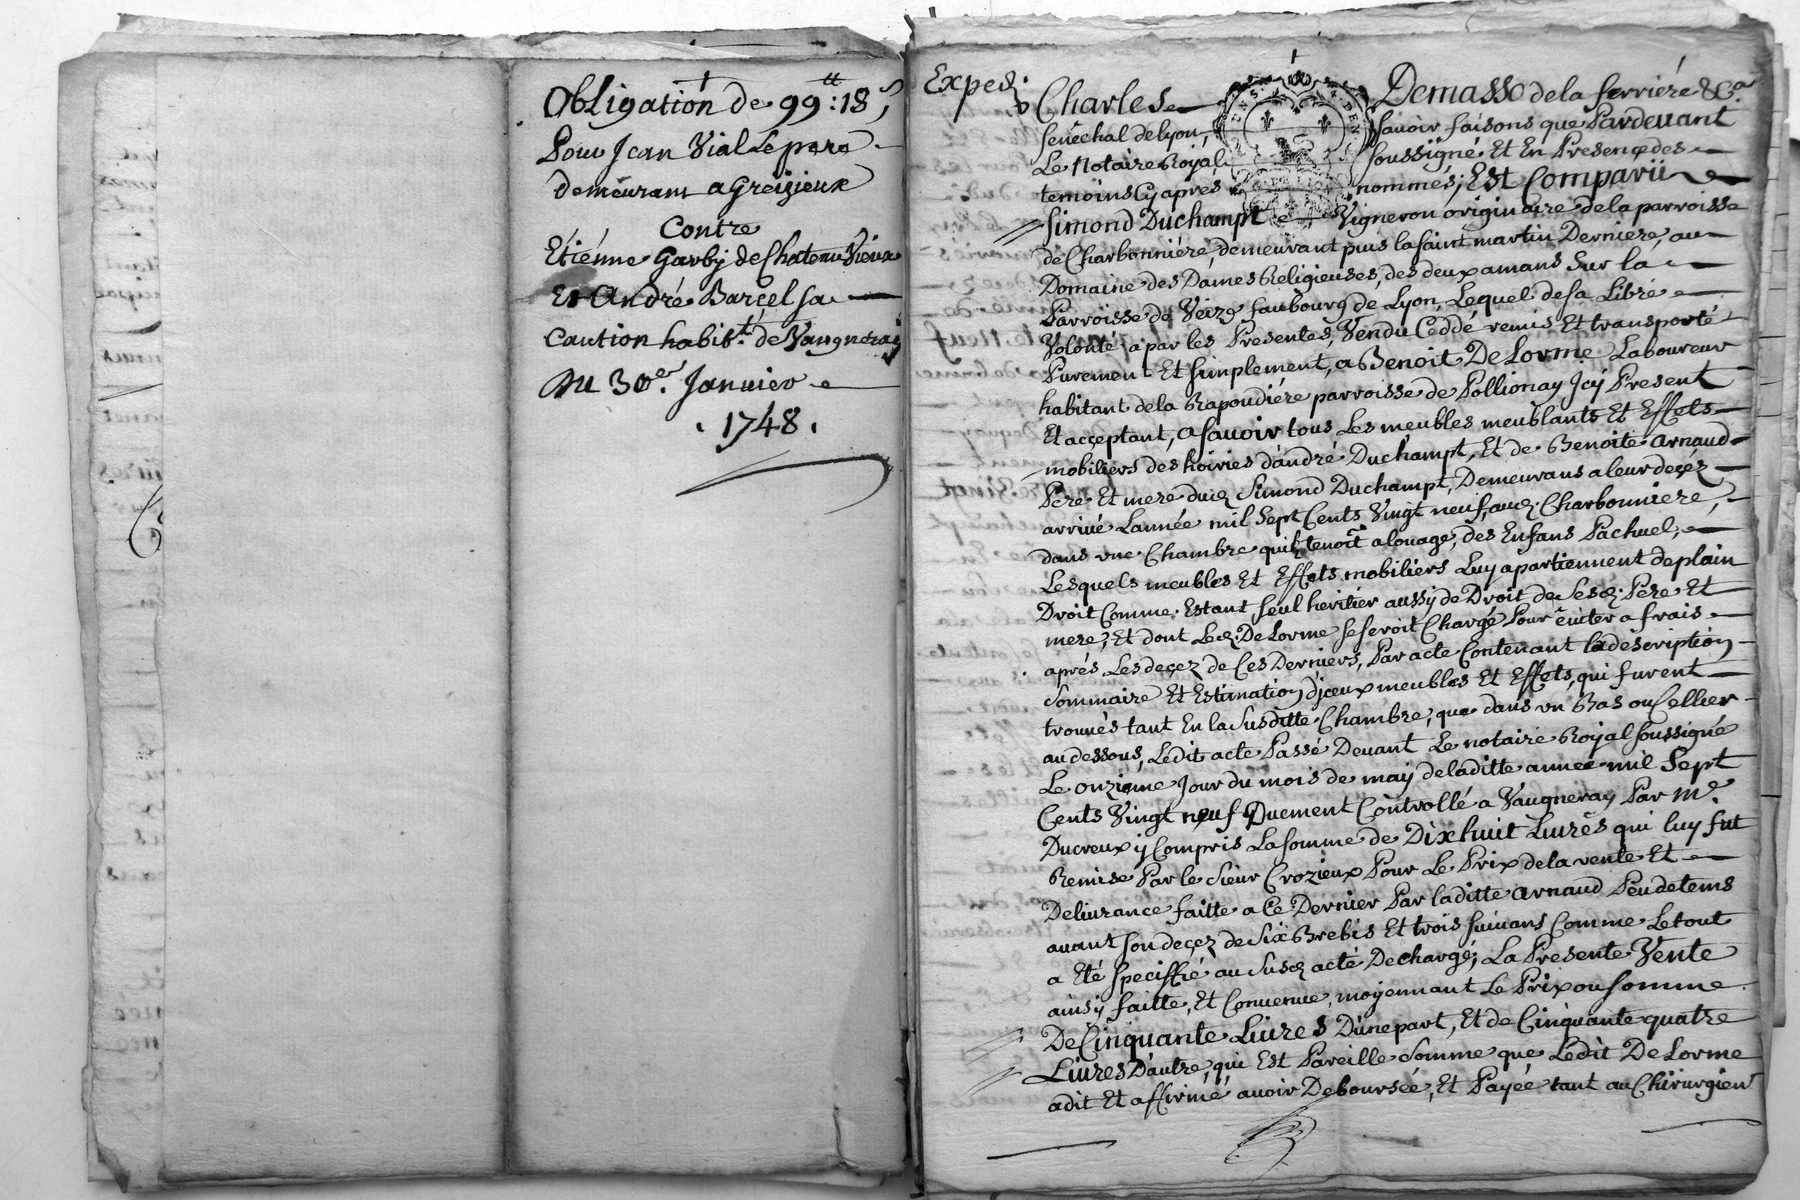 Obligation de 99ᵗᵗ:18ˢ
Pour Jean Vial Lepere
demeurant a Greizieux
Contre
Etiénne Garby de Chateau Vieux
Et André Barcel sa
caution habit.ᵗ de Vaugneray
Du 30.ᵉ Janvier
. 1748 .
Exped.
Charles Demasso de la ferriére &C.ᵃ
senéchal de lyon savoir faisons que Pardevant
Le Notaire Royal soussigné Et En Presence des
temoins Cy aprés nommés, Est Comparü
Simond Duchampt Vigneron originaire de la parroisse
de Charbonniére, demeurant puis la saint martin Derniere, au
Domaine des Dames Religieuses, des deux amans Sur la
Parroisse de Veize faubourg de Lyon, Lequel de sa Libre
Volonté a par les Presentes, Vendu Ceddé remis Et transporté
Purement Et simplement, a Benoit De Lorme Laboureur
habitant de la Rapoudiére parroisse de Pollionay Jcy Present
Et acceptant, a savoir tous Les meubles meublants Et Effets
mobiliers des hoiries d'andré Duchampt, Et de Benoite Arnaud
Pere Et mere dud. Simond Duchampt, Demeurans a leur decéz
arrivé Lannée mil Sept Cents Vingt neuf, aud. Charbonniere,
dans une Chambre quilz tenoit a louage, des Enfans Pachuel,
Lesquels meubles Et Effets mobiliers Luy apartiennent de plain
Droit Comme Estant seul heritier aussy de Droit de Sesd. Pere Et
mere, Et dont Led. De Lorme se seroit Chargé Pour eviter a frais
aprés Les decez de Ces Derniers, Par acte Contenant la déscription
Sommaire Et Estimation djceux meubles Et Effets, qui furent
trouvés tant En la Susditte Chambre, que dans un Bas ou Cellier
au dessous, Ledit acte Passé Devant Le notaire Royal soussigné
Le onzieme Jour du mois de may de laditte année mil Sept
Cents Vingt neuf Duement Controllé a Vaugneray Par M.ᵉ
Ducreux y Compris La somme de Dix huit Livres qui luy fut
Remise Par le Sieur Crozieux Pour Le Prix de la vente Et
Delivrance faitte a Ce Dernier Par laditte Arnaud Peu de tems
avant son decez de Six Brebis Et trois suivans Comme Le tout
a Eté speciffié au Susd. acte De chargé; La Presente Vente
ainsy faitte, Et Convenue, moyennant Le Prix ou somme
De Cinquante Livres D'une part, Et de Cinquante quatre
Livres D'autre, qui Est Pareille Somme que Ledit De Lorme
a dit Et affirmé avoir Deboursée, Et Payée tant au Chirurgien